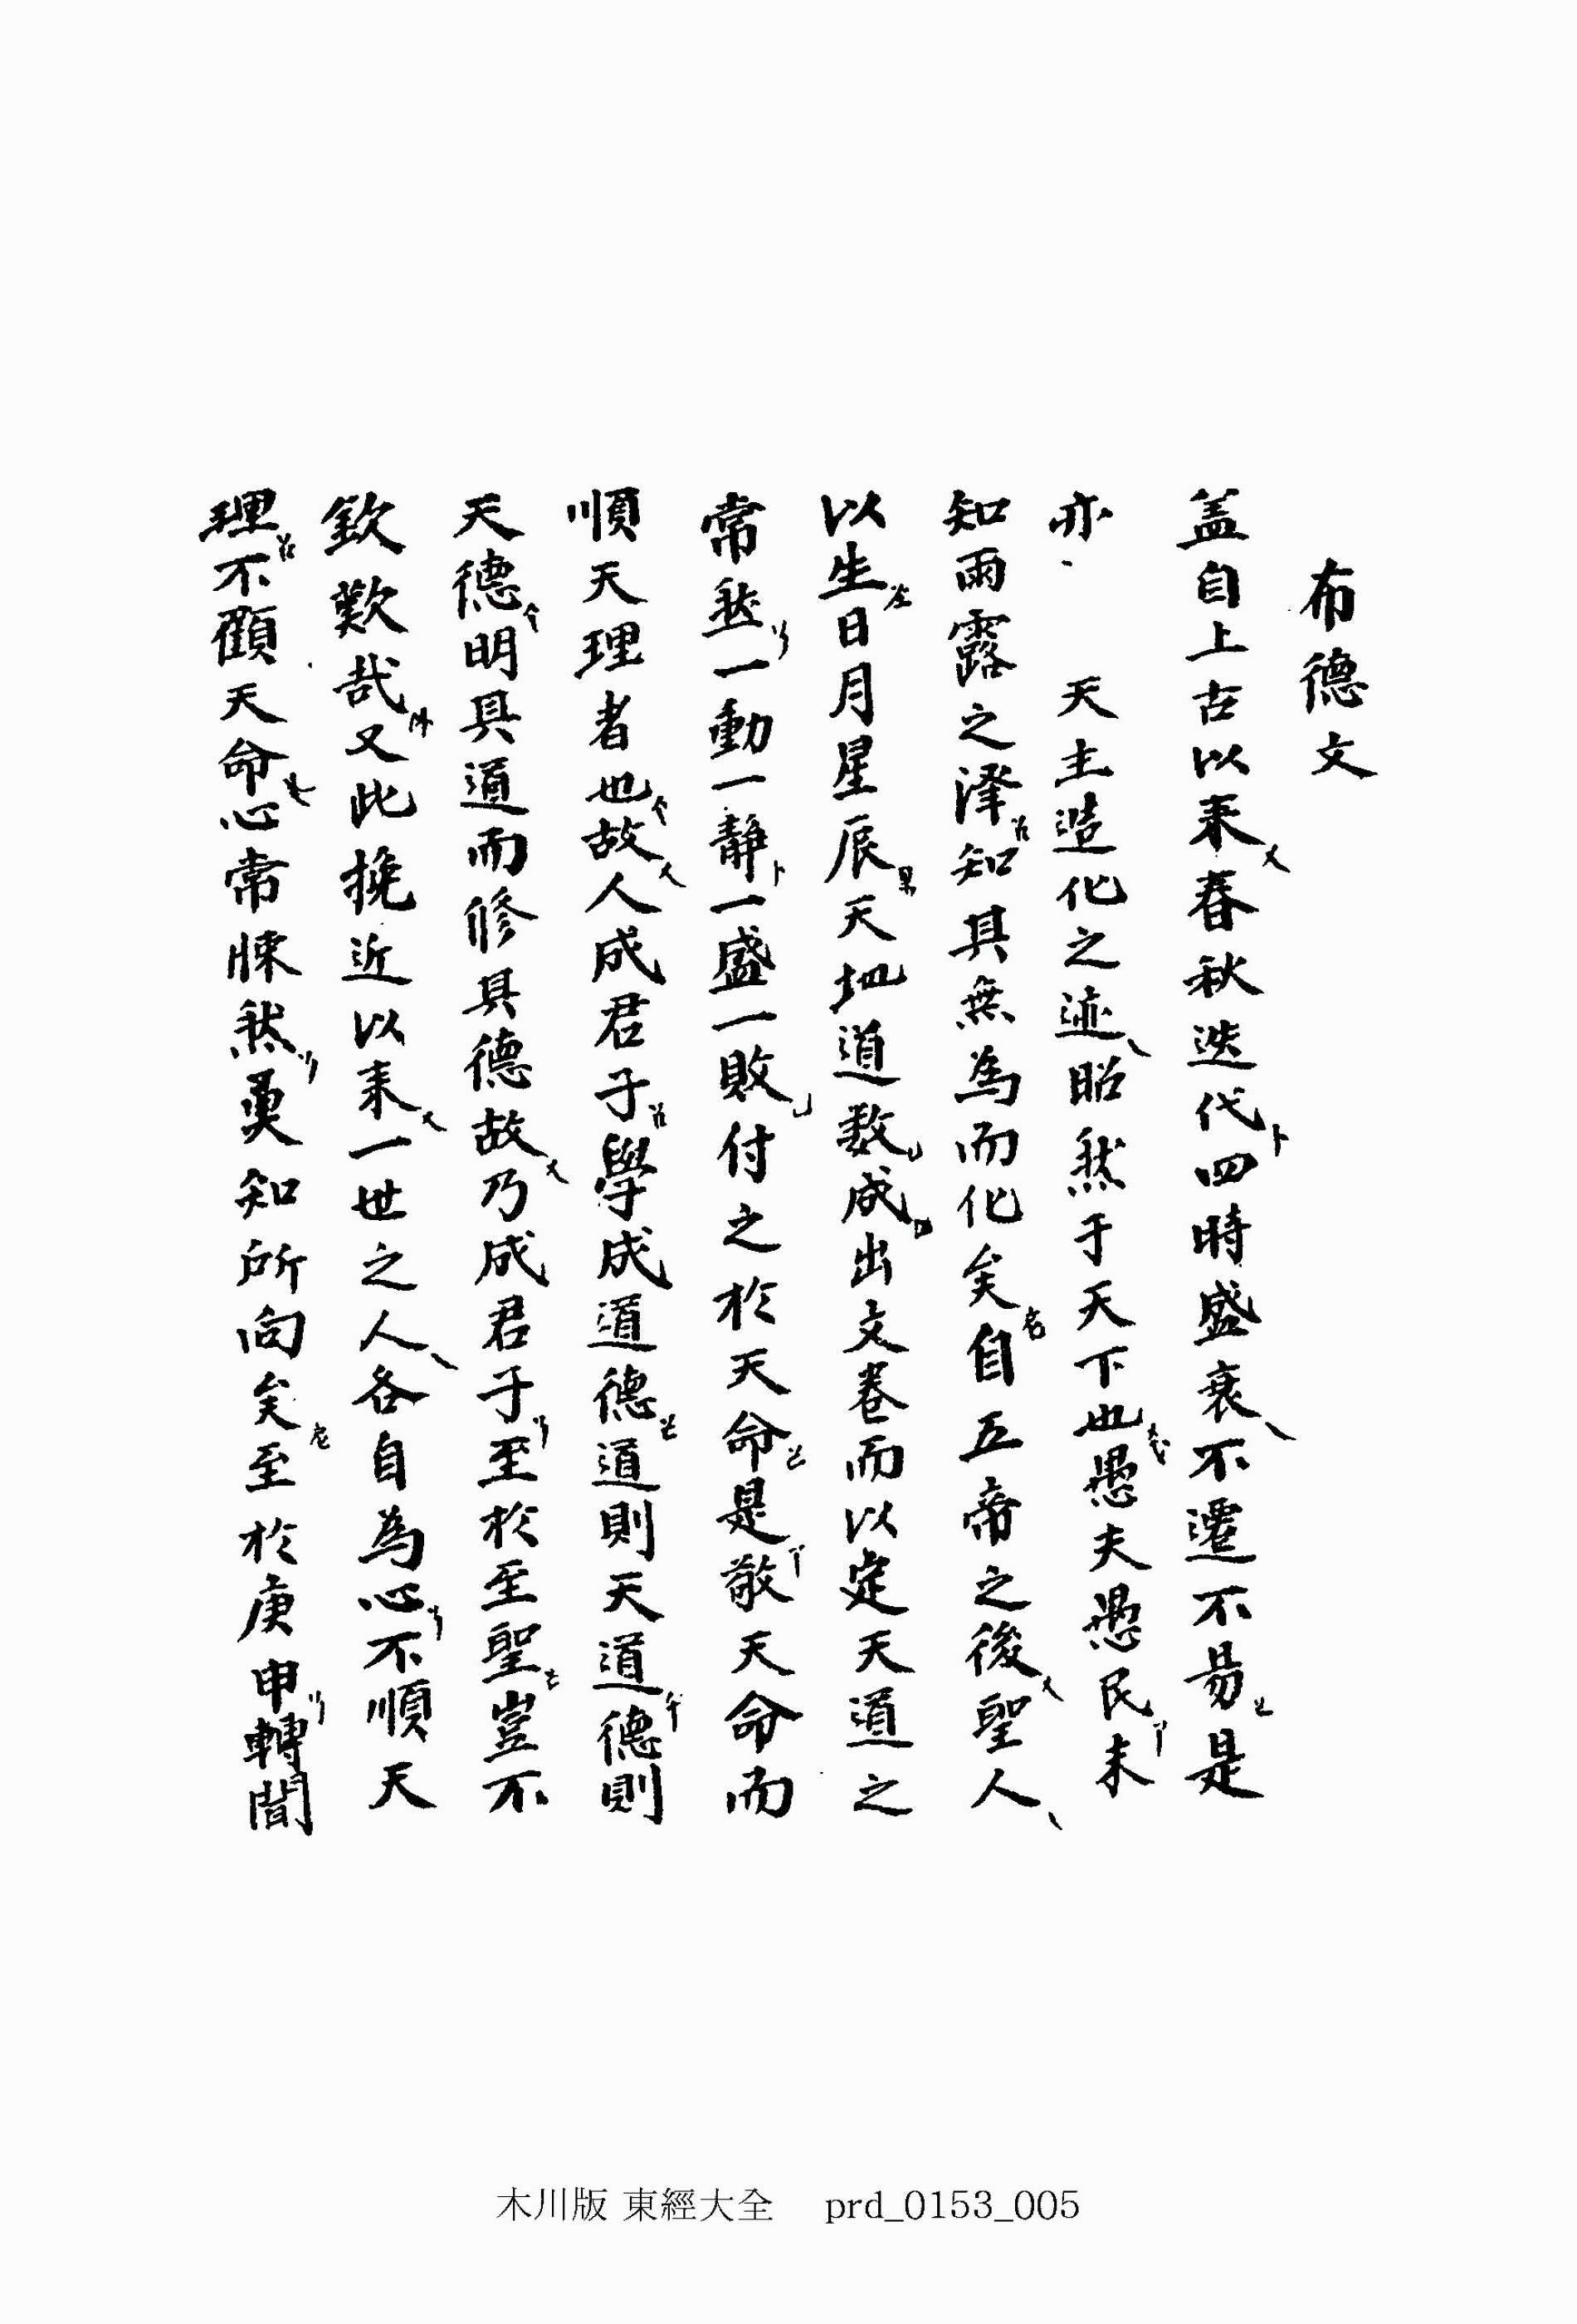 布德文
盖自上古以来春秋迭代四時盛衰不遷不易是
亦 天主造化之迹昭然于天下也愚夫愚民未
知雨露之澤知其無為而化矣自五帝之後聖人
以生日月星辰天地道数成出文卷而以定天道之
常然一動一静一盛一敗付之於天命是敬天命而
順天理者也故人成君子學成道德道則天道德則
天德明其道而修其德故乃成君子至於至聖豈不
欽歎哉又此挽近以来一世之人各自為心不順天
理不顧天命心常悚然莫知所向矣至於庚申轉聞
木川版 東經大全 prd_0153_005